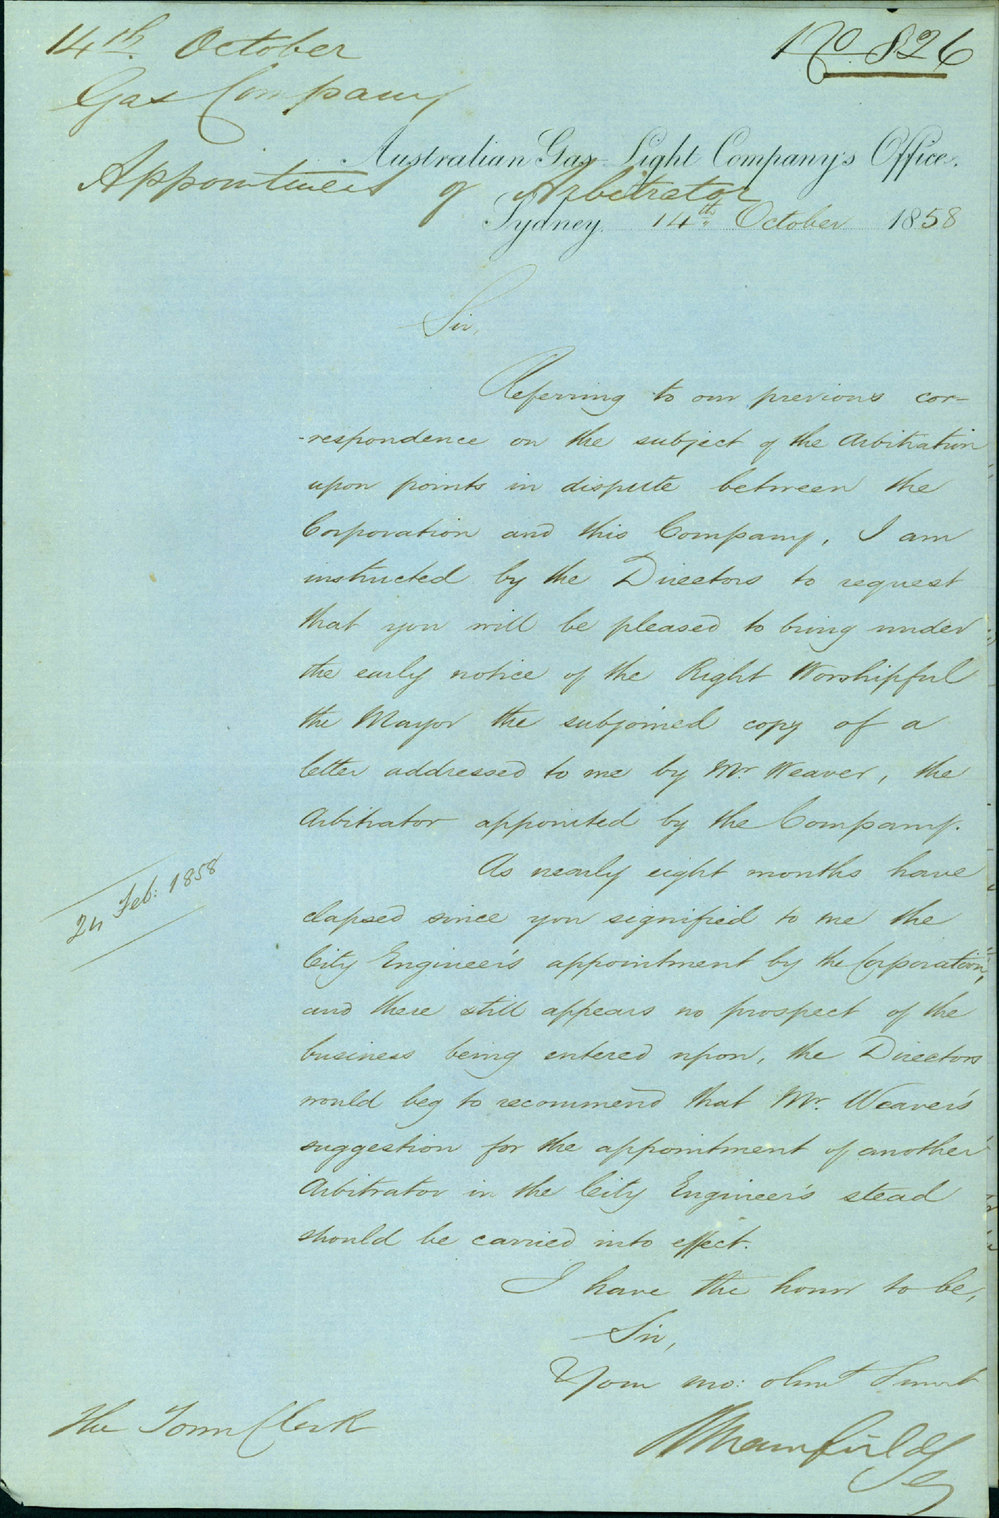 14th October
No 826
Gas Company
Australian Gas-Light Company's Office.
Appointment of Arbitrator
Sydney 14th October 1858
Sir,
Referring to our previous cor-
-respondence on the subject of the Arbitration
upon points in dispute between the
Corporation and this Company, I am
instructed by the Directors to request
that you will be pleased to bring under
the early notice of the Right Worshipful
the Mayor the subjoined copy of a
letter addressed to me by Mr Weaver, the
Arbitrator appointed by the Company.
As nearly eight months have
24 Feb: 1858
elapsed since you signified to me the
City Engineer's appointment by the Corporation,
and there still appears no prospect of the
business being entered upon, the Directors
would beg to recommend that Mr. Weaver's
suggestion for the appointment of another
Arbitrator in the City Engineer's stead
should be carried into effect.
I have the honor to be,
Sir,
Your mo: obnt Servnt
The Town Clerk